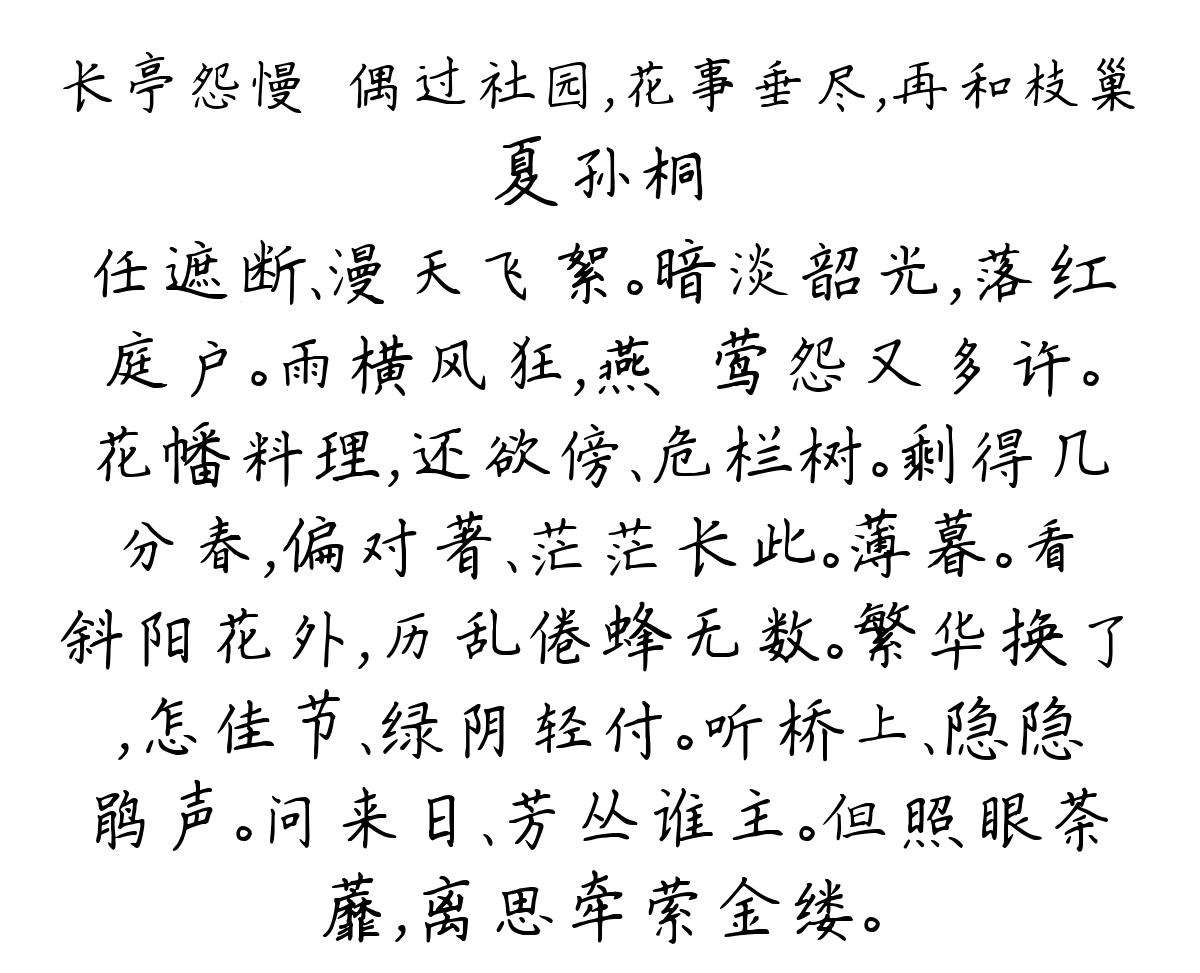 长亭怨慢 偶过社园,花事垂尽,再和枝巢
夏孙桐
任遮断、漫天飞絮。暗淡韶光,落红
庭户。雨横风狂,燕 莺怨又多许。
花幡料理,还欲傍、危栏树。剩得几
分春,偏对著、茫茫长此。薄暮。看
斜阳花外,历乱倦蜂无数。繁华换了
,怎佳节、绿阴轻付。听桥上、隐隐
鹃声。问来日、芳丛谁主。但照眼荼
蘼,离思牵萦金缕。